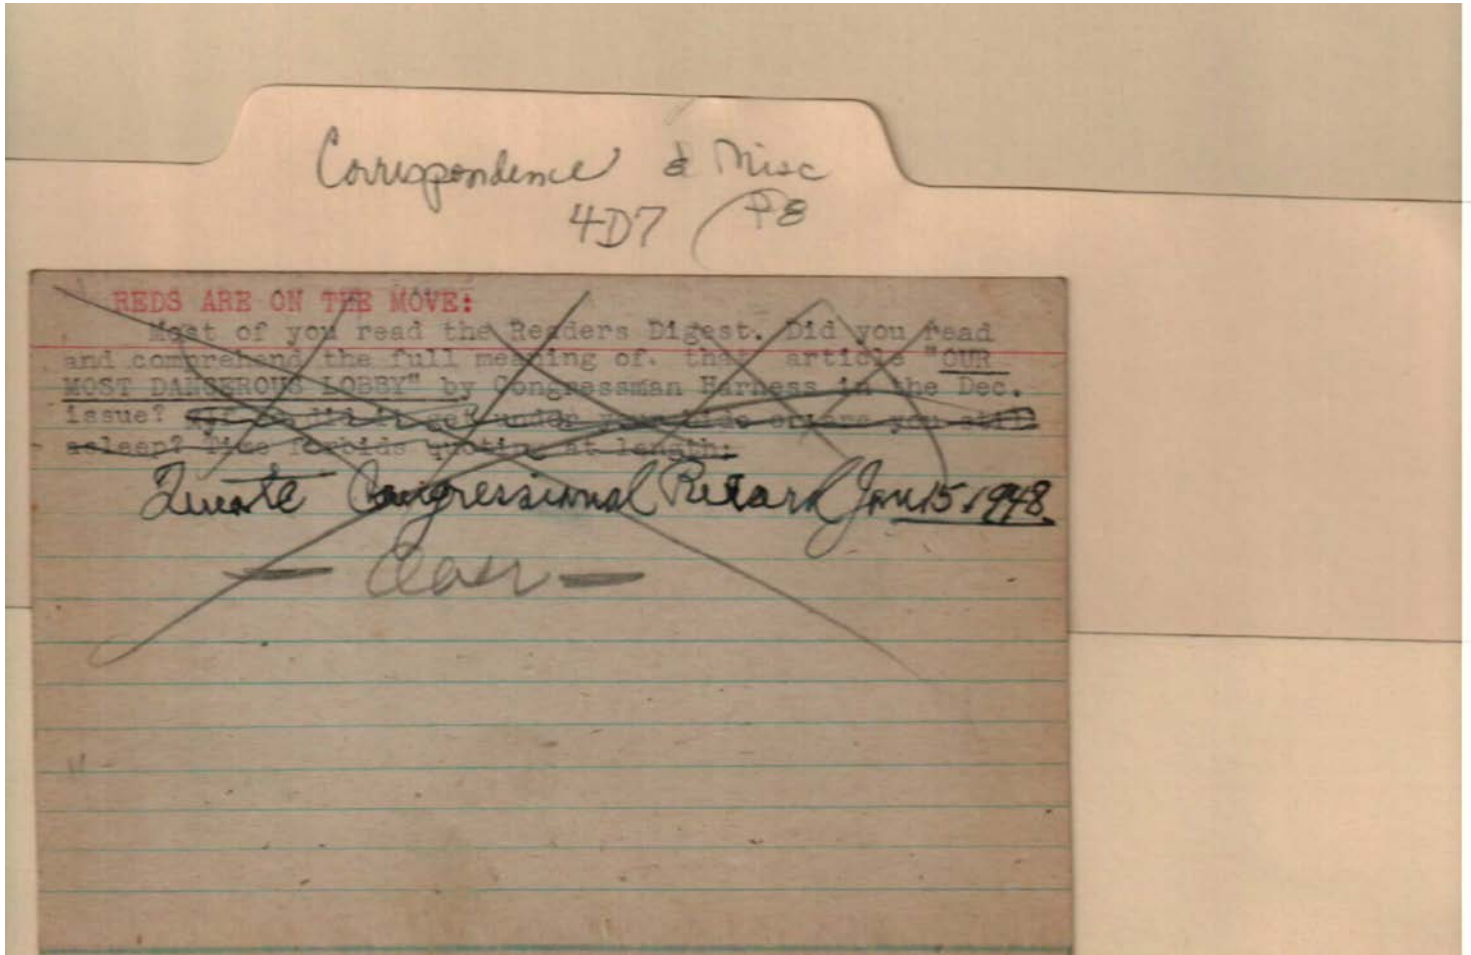 Correspondence & Misc
4D7 (P8
REDS ARE ON THE MOVE:
Most of you read the Readers Digest. Did you read
and comprehend the full meaning of. that article "OUR
MOST DANGEROUS LOBBY" by Congressman Harness in the Dec.
issue? If so did it get under your hide or are you still
asleep? Time forbids quoting at length:
Quote Congressional Record Jan 15, 1948.